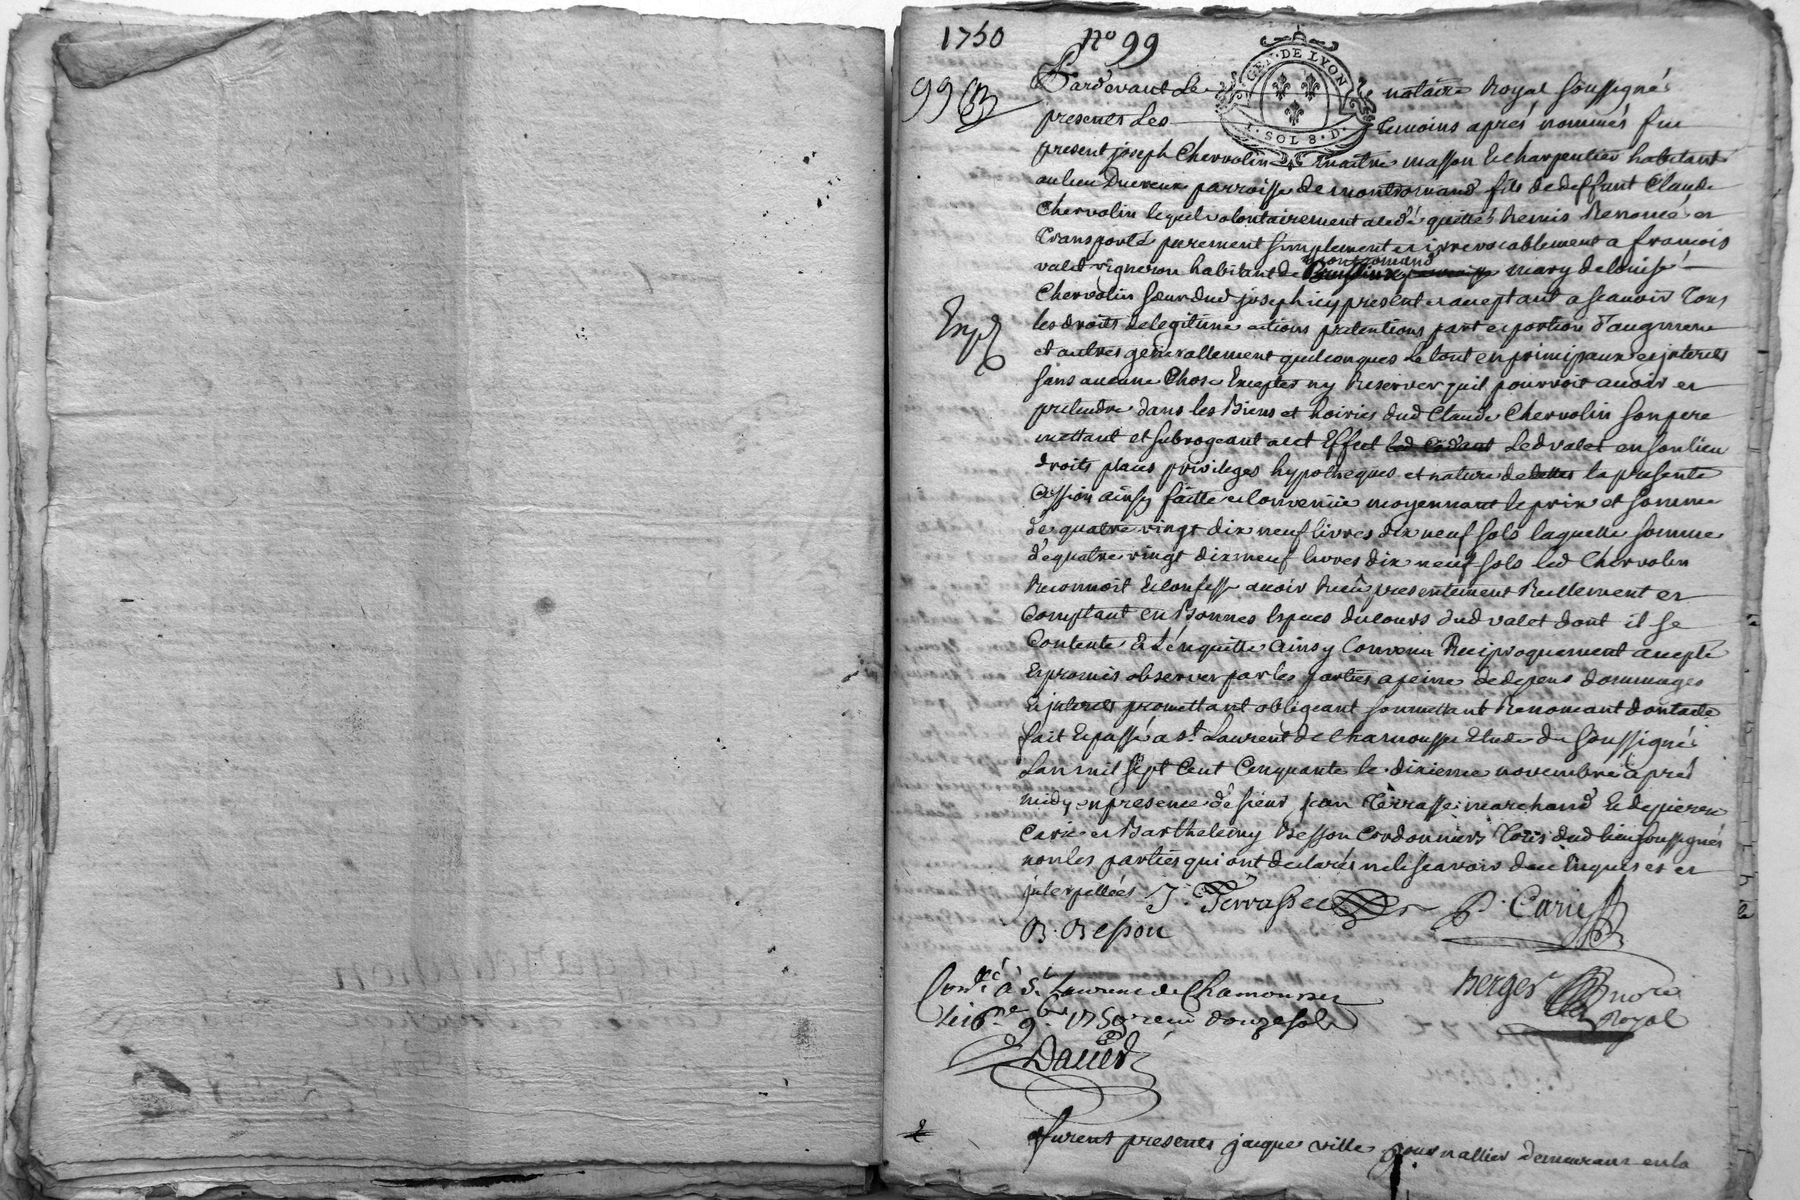 1750 No 99
99
GEN. DE LYON
1. SOL 8. D.
Pardevant Le notaire Royal soussigné
presents Les Temoins aprés nommés fut
present joseph Chervolin maitre masson & charpentier habitant
au lieu parroisse de montromand fils de deffunt Claude
Chervolin lequel volontairement a cedé quitté remis Renoncé et
transporté purement simplement et irrevocablement a francois
montromand
valet vigneron habitant de mary de louise
Chervolin sœur dud joseph icy present et acceptant a scavoir Tous
Exp
les droits de legitime actions pretentions part et portion d'augment
et autres generallement quelconques le tout en principaux et interets
sans aucune Chose Excepter ny Reserver quil pourroit avoir et
pretendre dans les Biens et hoiries dud Claude Chervolin son pere
mettant et subrogeant a cet Effet led cedant Led valet en son lieu
droits places privileges hypotheques et nature de la presente
Cession ainsy faitte et Convenüe moyennant le prix et somme
de quatre vingt dix neuf livres dix neuf sols laquelle somme
de quatre vingt dix neuf livres dix neuf sols led Chervolin
Reconnoit & confesse avoir Reçû presentement Reellement et
Comptant en Bonnes Especes du cours dud valet dont il se
Contente & L'enquitte Ainsy Convenu Reciproquement accepté
Et promis observer par les parties a peine de depens dommages
& interets promettant obligeant soumettant Renoncant dont acte
fait & passé a st Laurent de Chamousset Etude du soussigné
Lan mil sept Cent Cinquante le dixieme novembre aprés
midy en presence de sieur jean Terrasse marchand & de pierre
Carie et Barthelemy Besson Cordonniers Tous dud lieu soussignés
non les parties qui ont declarés ne le scavoir de ce Enquises et
interpellées J. Terrasse P. Carie
B. Besson
Conlé à St Laurent de Chamousset Berger nore
Le 16e 9bre 1750 recu douze sols Royal
Dauer
furent presents jacques ville journallier demeurant en la